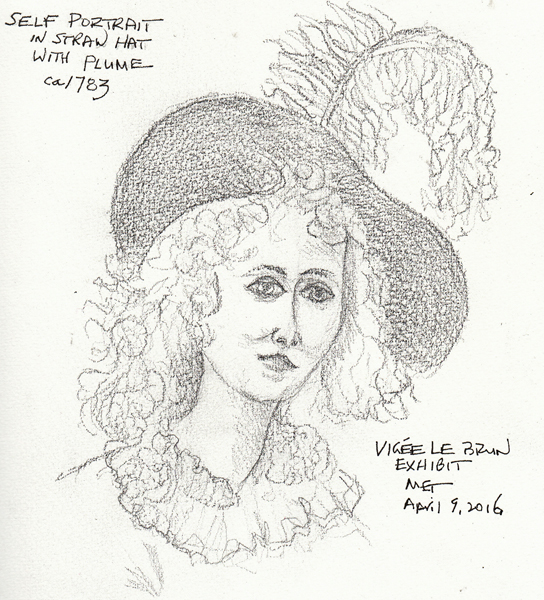 SELF PORTRAIT
IN STRAW HAT
WITH PLUME
ca1783
VIGÉE LE BRUN
EXHIBIT
MET
April 9, 2016